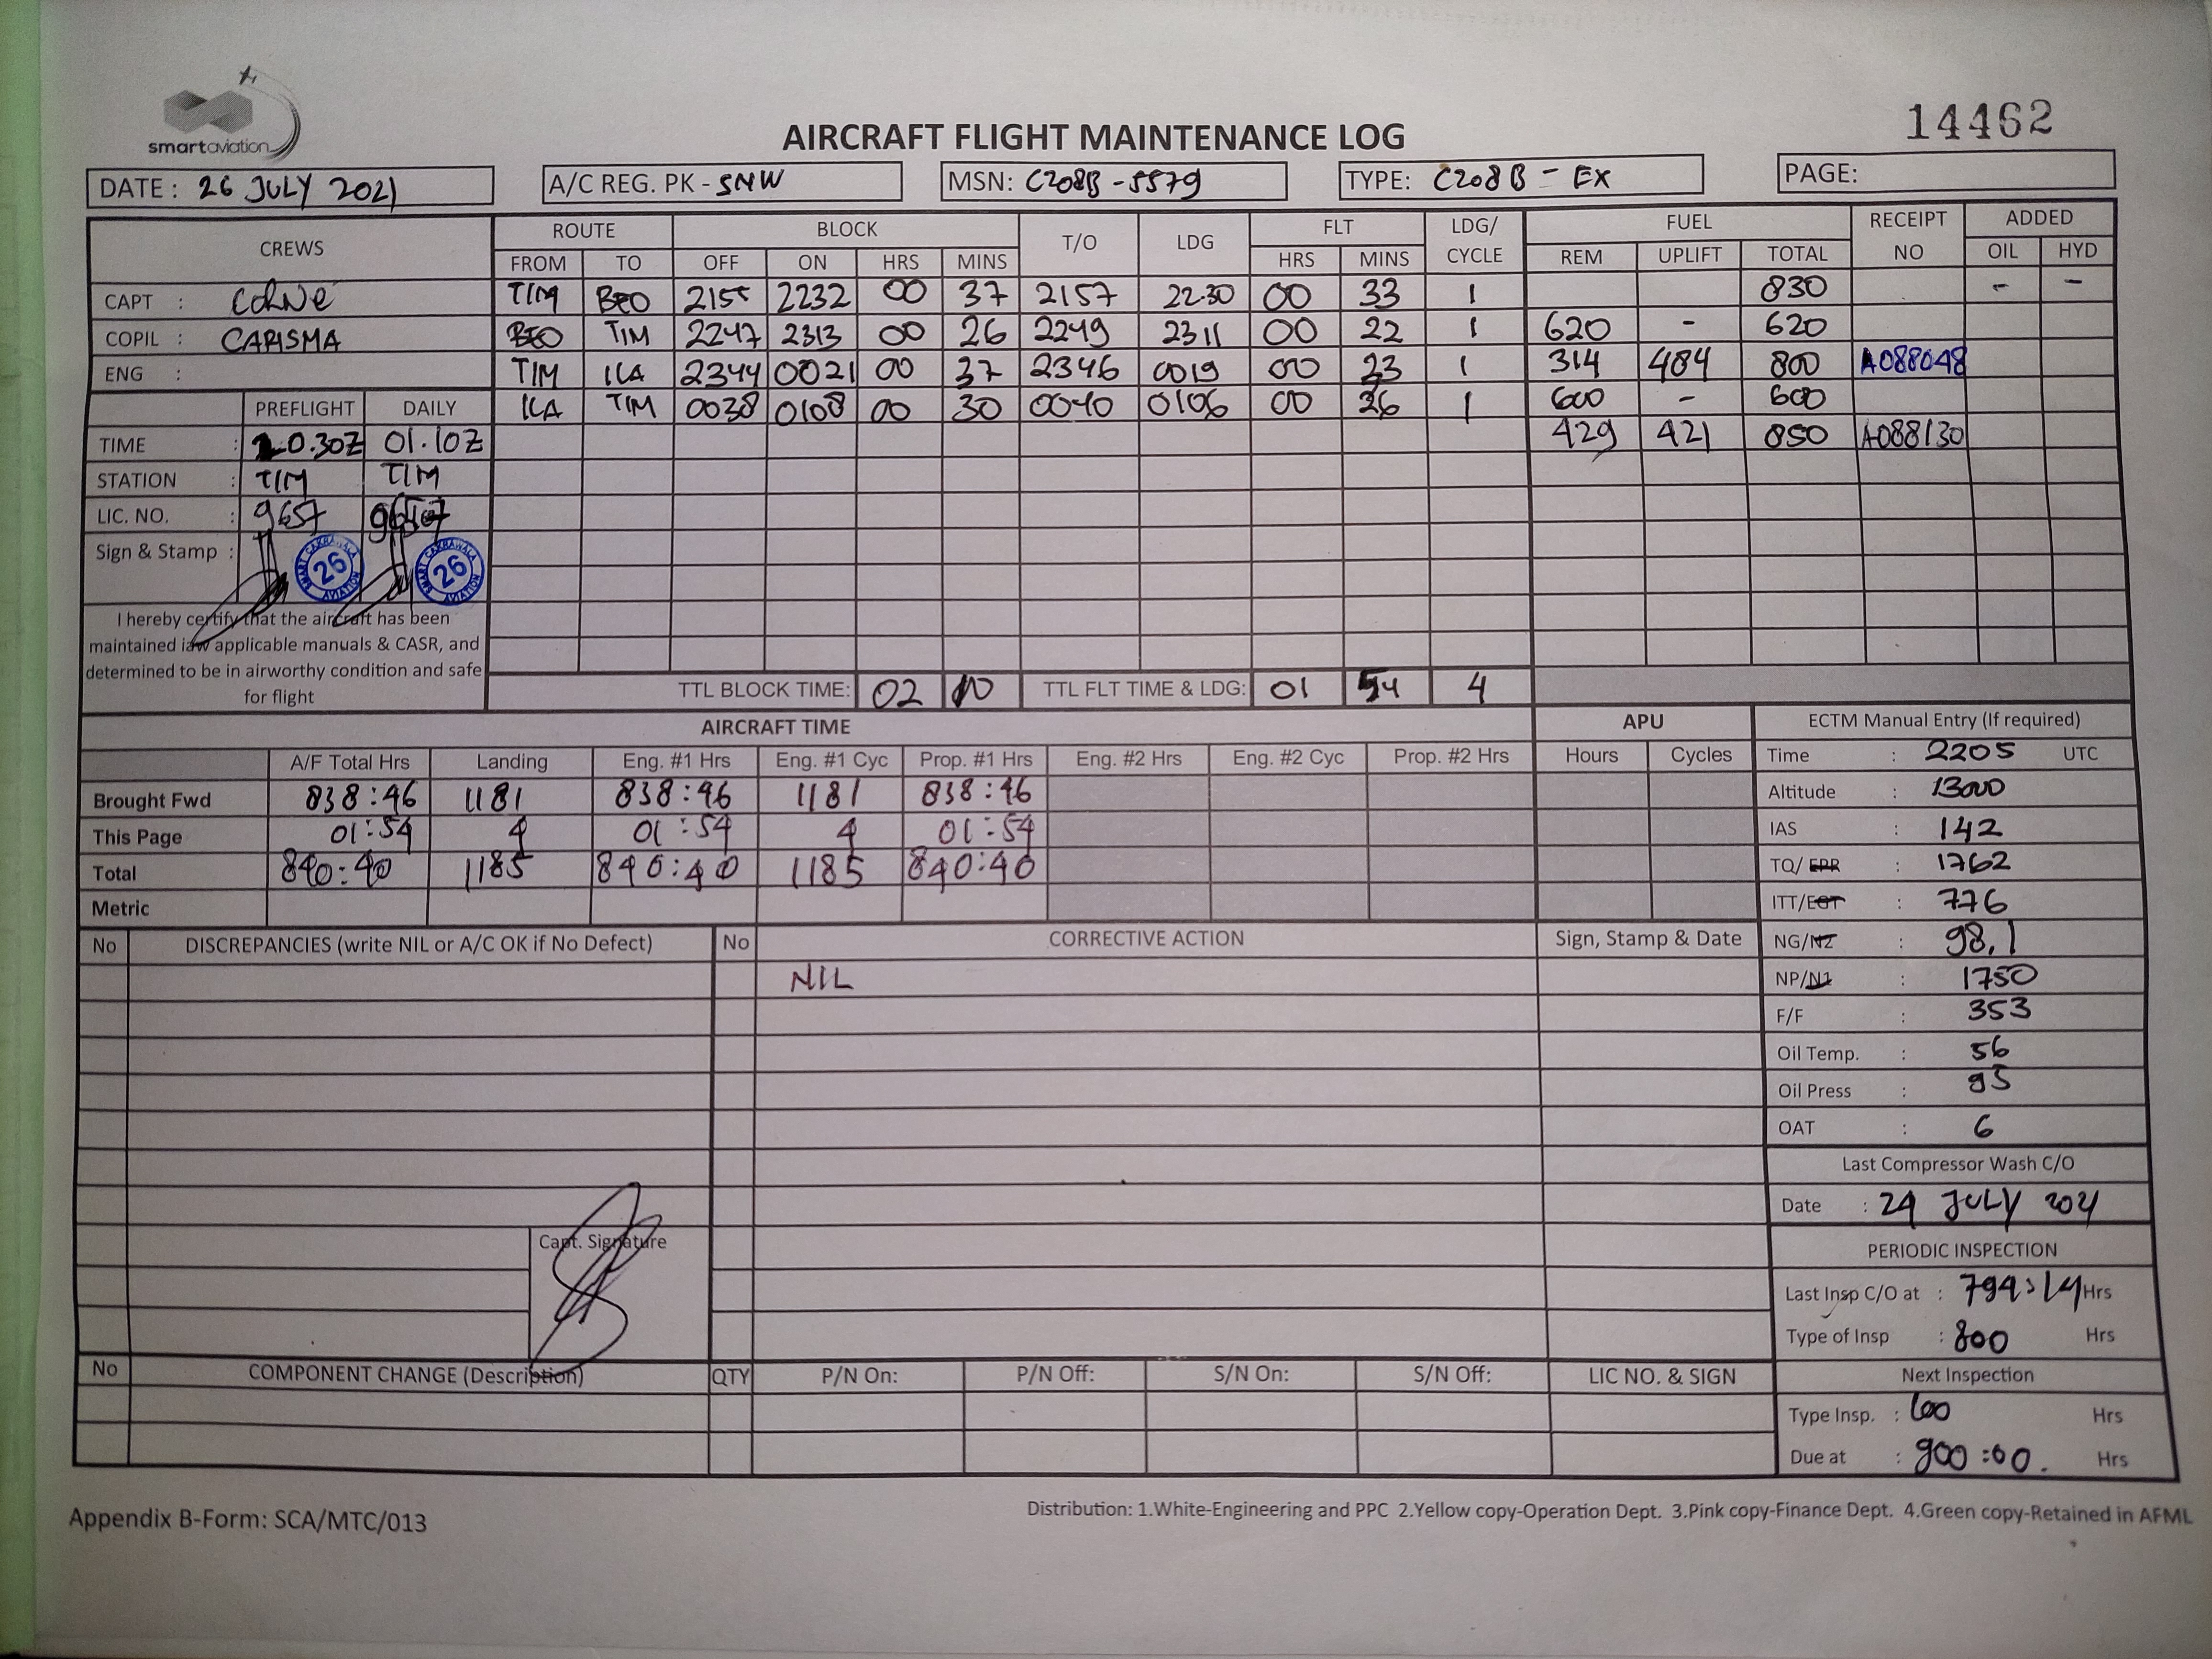 smartaviation
14462
AIRCRAFT FLIGHT MAINTENANCE LOG
DATE : 26 JULY 2021 A/C REG. PK - SNW MSN: C208B - 5579 TYPE: C208B - EX PAGE:
CREWS ROUTE BLOCK T/O LDG FLT LDG/ CYCLE FUEL RECEIPT NO ADDED
FROM TO OFF ON HRS MINS HRS MINS REM UPLIFT TOTAL OIL HYD
CAPT : COLNE TIM BEO 2155 2232 00 37 2157 22.30 00 33 1 830 - -
COPIL : CARISMA BEO TIM 2247 2313 00 26 2249 2311 00 22 1 620 - 620
ENG : TIM ILA 2344 0021 00 37 2346 0019 00 33 1 314 484 800 A088048
ILA TIM 0038 0108 00 30 0040 0106 00 26 1 600 - 600
429 421 850 A088130
PREFLIGHT DAILY
TIME : 20.30Z 01.10Z
STATION : TIM TIM
LIC. NO. : 9657 9657
Sign & Stamp :
SMART CAKRAWALA AVIATION 26
SMART CAKRAWALA AVIATION 26
I hereby certify that the aircraft has been
maintained iaw applicable manuals & CASR, and
determined to be in airworthy condition and safe
for flight
TTL BLOCK TIME: 02 10 TTL FLT TIME & LDG: 01 54 4
AIRCRAFT TIME APU ECTM Manual Entry (If required)
A/F Total Hrs Landing Eng. #1 Hrs Eng. #1 Cyc Prop. #1 Hrs Eng. #2 Hrs Eng. #2 Cyc Prop. #2 Hrs Hours Cycles
Brought Fwd 838:46 1181 838:46 1181 838:46
This Page 01:54 4 01:54 4 01:54
Total 840:40 1185 840:40 1185 840:40
Metric
Time : 2205 UTC
Altitude : 13000
IAS : 142
TQ/ EPR : 1762
ITT/EGT : 776
NG/N2 : 98.1
NP/N1 : 1750
F/F : 353
Oil Temp. : 56
Oil Press : 95
OAT : 6
Last Compressor Wash C/O
Date : 24 JULY 2021
PERIODIC INSPECTION
Last Insp C/O at : 794:14 Hrs
Type of Insp : 800 Hrs
Next Inspection
Type Insp. : 100 Hrs
Due at : 900:00. Hrs
No DISCREPANCIES (write NIL or A/C OK if No Defect) No CORRECTIVE ACTION Sign, Stamp & Date
NIL
Capt. Signature
No COMPONENT CHANGE (Description) QTY P/N On: P/N Off: S/N On: S/N Off: LIC NO. & SIGN
Appendix B-Form: SCA/MTC/013
Distribution: 1.White-Engineering and PPC 2.Yellow copy-Operation Dept. 3.Pink copy-Finance Dept. 4.Green copy-Retained in AFML